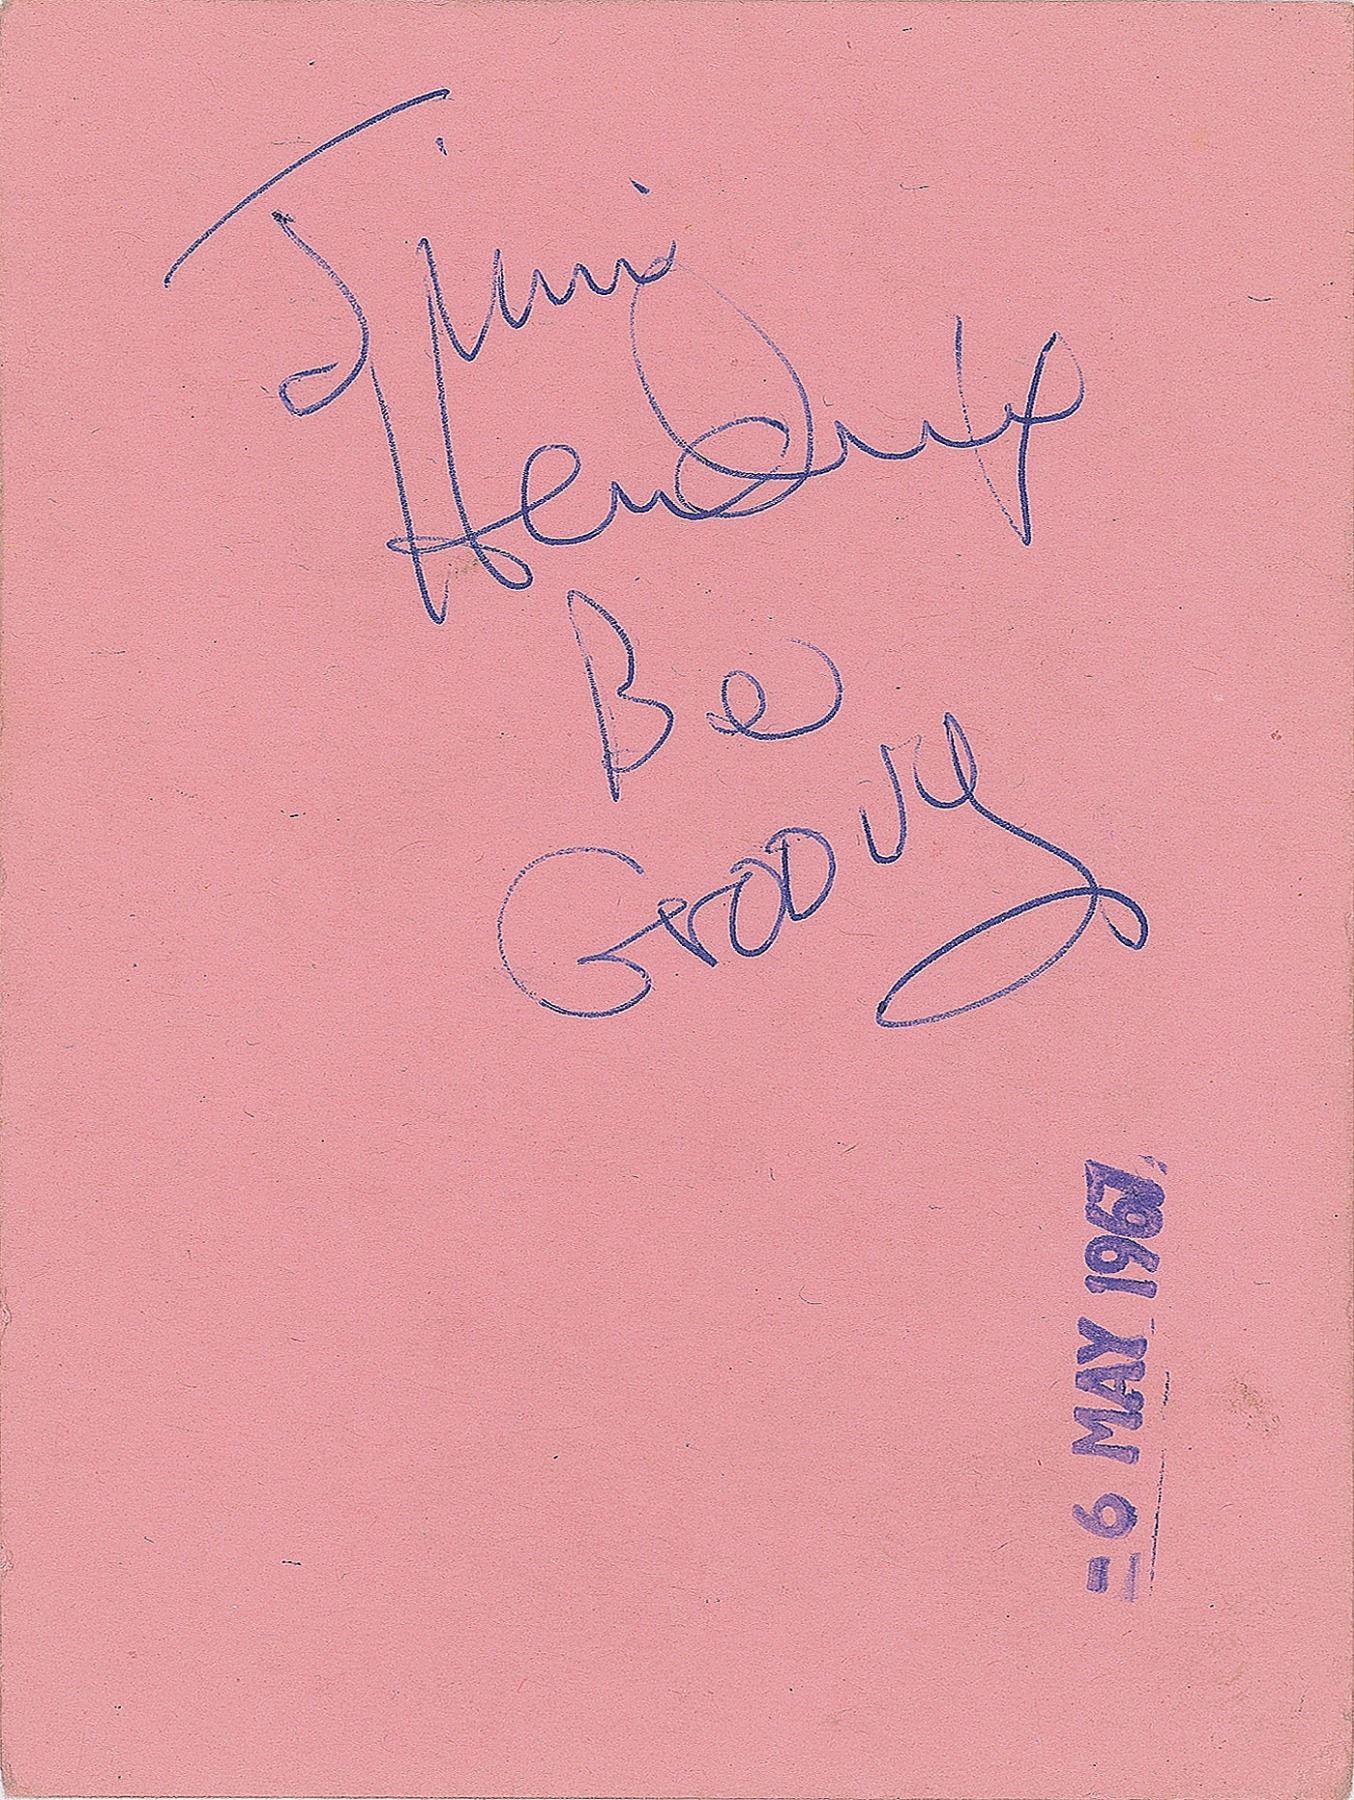 Jimi
Hendrix
Be
Groovy
- 6 MAY 1967